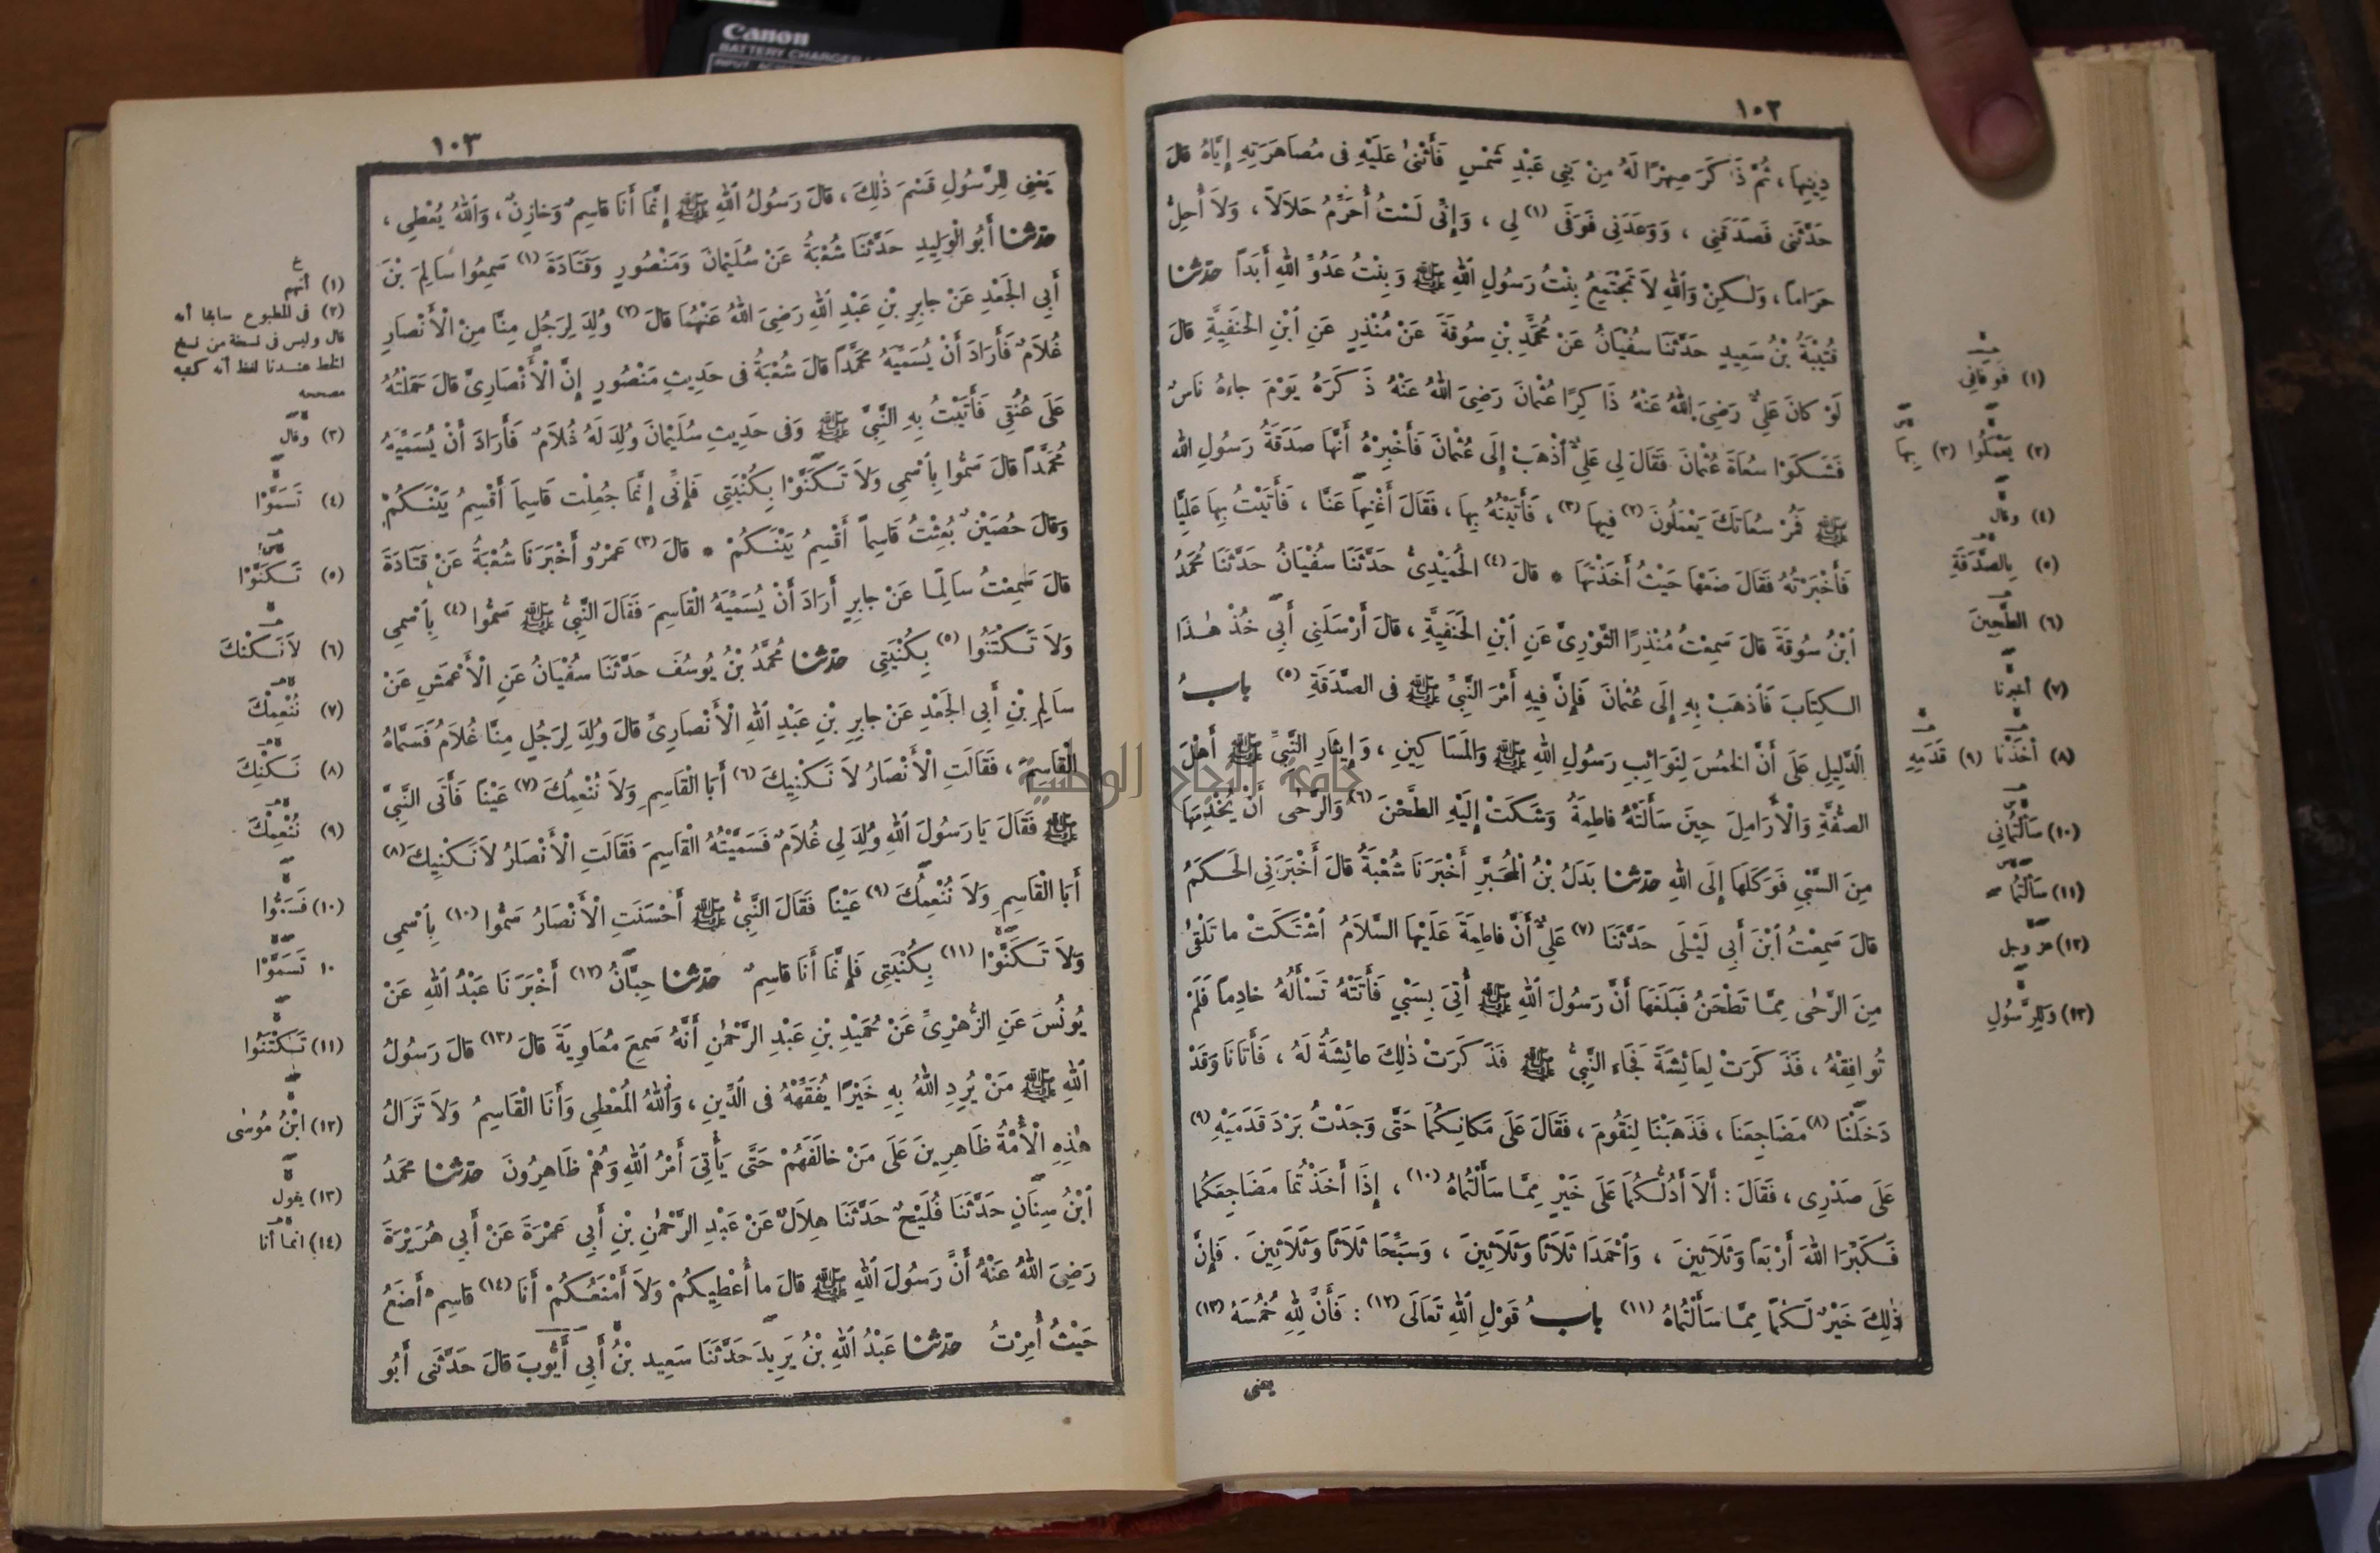 Canon
BATTERY CHARGER
١٠٢
دِينِهَا، ثُمَّ ذَكَرَ صِهْرًا لَهُ مِنْ بَنِي عَبْدِ شَمْسٍ فَأَثْنَىٰ عَلَيْهِ فِى مُصَاهَرَتِهِ إِيَّاهُ قالَ
حَدَّثَنِى فَصَدَقَنِي ، وَوَعَدَنِي فَوَفَى (١) لِي ، وَإِنِّى لَسْتُ أُحَرِّمُ حَلاَلاً ، وَلاَ أُحِلُّ
حَرَاماً ، وَلٰكِنْ وَاللهِ لاَ تَجْتَمِعُ بِنْتُ رَسُولِ اللهِ ﷺ وَبِنْتُ عَدُوِّ اللهِ أَبَداً حدثنا
قُتَيْبَةُ بْنُ سَعِيدٍ حَدَّثَنَا سُفْيَانُ عَنْ مُحَمَّدِ بْنِ سُوقَةَ عَنْ مُنْذِرٍ عَنِ ابْنِ الحَنَفِيَّةِ قالَ
لَوْ كانَ عَلِيٌّ رَضِيَ اللهُ عَنْهُ ذَاكِرًا عُثْمانَ رَضِيَ اللهُ عَنْهُ ذَكَرَهُ يَوْمَ جاءهُ نَاسٌ
فَشَكَوْا سُعَاةَ عُثْمانَ فَقَالَ لِي عَلِيٌّ اذْهَبْ إِلَى عُثْمانَ فَأَخْبِرْهُ أَنَّهَا صَدَقَةُ رَسُولِ اللهِ
ﷺ فَمُرْ سُعَاتَكَ يَعْمَلُونَ (٢) فِيهَا (٣) ، فَأَتَيْتُهُ بِهَا ، فَقَالَ أَغْنِهَا عَنَّا ، فَأَتَيْتُ بِهَا عَلِيًّا
فَأَخْبَرْتُهُ فَقَالَ ضَعْهَا حَيْثُ أَخَذْتَهَا * قالَ (٤) الحُمَيْدِىُّ حَدَّثَنَا سُفْيَانُ حَدَّثَنَا مُحَمَّدُ
ابْنُ سُوقَةَ قالَ سَمِعْتُ مُنْذِرًا الثَّوْرِىَّ عَنِ ابْنِ الحَنَفِيَّةِ ، قالَ أَرْسَلَنِي أَبِي خُذْ هٰذَا
الكِتَابَ فَاذْهَبْ بِهِ إِلَى عُثْمانَ فَإِنَّ فِيهِ أَمْرَ النَّبِيِّ ﷺ فى الصَّدَقَةِ (٥) بابُ
الدَّلِيلِ عَلَى أَنَّ الخُمُسَ لِنَوَائِبِ رَسُولِ اللهِ ﷺ وَالمَسَاكِينِ ، وَإِيثَارِ النَّبِيِّ ﷺ أَهْلَ
الصُّفَّةِ وَالْأَرَامِلَ حِينَ سَأَلَتْهُ فاطِمَةُ وَشَكَتْ إِلَيْهِ الطَّحْنَ (٦) وَالرَّحٰى أَنْ يُخْدِمَهَا
مِنَ السَّبْيِ فَوَكَلَهَا إِلَى اللهِ حدثنا بَدَلُ بْنُ الْمُحَبَّرِ أَخْبَرَنَا شُعْبَةُ قالَ أَخْبَرَنِى الحَكَمُ
قالَ سَمِعْتُ ابْنَ أَبِي لَيْلَى حَدَّثَنَا (٧) عَلِيٌّ أَنَّ فاطِمَةَ عَلَيْهَا السَّلاَمُ اشْتَكَتْ ما تَلْقَىٰ
مِنَ الرَّحٰى مِمَّا تَطْحَنُ فَبَلَغَهَا أَنَّ رَسُولَ اللهِ ﷺ أُتِىَ بِسَبْيٍ فَأَتَتْهُ تَسْأَلُهُ خادِماً فَلَمْ
تُوَافِقْهُ ، فَذَكَرَتْ لِعَائِشَةَ فَجَاءَ النَّبِيُّ ﷺ فَذَكَرَتْ ذٰلِكَ عائِشَةُ لَهُ ، فَأَتَانَا وَقَدْ
دَخَلْنَا (٨) مَضَاجِعَنَا ، فَذَهَبْنَا لِنَقُومَ ، فَقَالَ عَلَى مَكانِكُمَا حَتَّى وَجَدْتُ بَرْدَ قَدَمَيْهِ (٩)
عَلَى صَدْرِى ، فَقَالَ : أَلاَ أَدُلُّكُمَا عَلَى خَيْرٍ مِمَّا سَأَلْتُمَاهُ (١٠) ، إِذَا أَخَذْتُمَا مَضَاجِعَكُمَا
فَكَبِّرَا اللهَ أَرْبَعاً وَثَلاَثِينَ ، وَاحْمَدَا ثَلاَثاً وَثَلاَثِينَ ، وَسَبِّحَا ثَلاَثاً وَثَلاَثِينَ . فَإِنَّ
ذٰلِكَ خَيْرٌ لَكُمَا مِمَّا سَأَلْتُمَاهُ (١١) بابُ قَوْلِ اللهِ تَعَالَى (١٢) : فَأَنَّ لِلّٰهِ خُمُسَهُ (١٣)
يعنى
(١) فَوَفَانِي
(٢) يَعْمَلُوا (٣) بِهَا
(٤) وقال
(٥) بِالصَّدَقَةِ
(٦) الطَّحِينَ
(٧) أخبرنا
(٨) أَخَذْنَا (٩) قَدَمِهِ
(١٠) سَأَلْتُمَانِي
(١١) سَأَلْتُمَا
(١٢) عز وجل
(١٣) وَلِلرَّسُولِ
١٠٣
يَعْنِى لِلرَّسُولِ قَسْمَ ذٰلِكَ ، قالَ رَسُولُ اللهِ ﷺ إِنَّمَا أَنَا قاسِمٌ وَخازِنٌ ، وَاللهُ يُعْطِي ،
حدثنا أَبُو الْوَلِيدِ حَدَّثَنَا شُعْبَةُ عَنْ سُلَيْمانَ وَمَنْصُورٍ وَقَتَادَةَ (١) سَمِعُوا سَالِمَ بْنَ
أَبِي الجَعْدِ عَنْ جابِرِ بْنِ عَبْدِ اللهِ رَضِىَ اللهُ عَنْهُمَا قالَ (٢) وُلِدَ لِرَجُلٍ مِنَّا مِنْ الْأَنْصَارِ
غُلاَمٌ فَأَرَادَ أَنْ يُسَمِّيَهُ مُحَمَّداً قالَ شُعْبَةُ فى حَدِيثِ مَنْصُورٍ إِنَّ الْأَنْصَارِىَّ قالَ حَمَلْتُهُ
عَلَى عُنُقِى فَأَتَيْتُ بِهِ النَّبِيَّ ﷺ وَفى حَدِيثِ سُلَيْمانَ وُلِدَ لَهُ غُلاَمٌ فَأَرَادَ أَنْ يُسَمِّيَهُ
مُحَمَّداً قالَ سَمُّوا بِاسْمِى وَلاَ تَكَنَّوْا بِكُنْيَتِي فَإِنِّى إِنَّمَا جُعِلْت قَاسِماً أَقْسِمُ بَيْنَكُمْ
وَقالَ حُصَيْنٌ بُعِثْتُ قَاسِماً أَقْسِمُ بَيْنَكُمْ * قالَ (٣) عَمْرٌو أَخْبَرَنَا شُعْبَةُ عَنْ قَتَادَةَ
قالَ سَمِعْتُ سالِمًا عَنْ جابِرٍ أَرَادَ أَنْ يُسَمِّيَهُ الْقَاسِمَ فَقَالَ النَّبِيُّ ﷺ سَمُّوا (٤) بِاسْمِي
وَلاَ تَكْتَنُوا (٥) بِكُنْيَتِي حدثنا مُحَمَّدُ بْنُ يُوسُفَ حَدَّثَنَا سُفْيَانُ عَنِ الْأَعْمَشِ عَنْ
سالِمِ بْنِ أَبِي الجَعْدِ عَنْ جابِرِ بْنِ عَبْدِ اللهِ الْأَنْصَارِىِّ قالَ وُلِدَ لِرَجُلٍ مِنَّا غُلاَمٌ فَسَمَّاهُ
الْقَاسِمَ ، فَقَالَتِ الْأَنْصَارُ لاَ نَكْنِيكَ (٦) أَبَا الْقَاسِمِ وَلاَ نُنْعِمُكَ (٧) عَيْنًا فَأَتَى النَّبِيَّ
ﷺ فَقَالَ يَا رَسُولَ اللهِ وُلِدَ لِي غُلاَمٌ فَسَمَّيْتُهُ الْقَاسِمَ فَقَالَتِ الْأَنْصَارُ لاَ نَكْنِيكَ (٨)
أَبَا الْقَاسِمِ وَلاَ نُنْعِمُكَ (٩) عَيْنًا فَقَالَ النَّبِيُّ ﷺ أَحْسَنَتِ الْأَنْصَارُ سَمُّوا (١٠) بِاسْمِي
وَلاَ تَكَنَّوْا (١١) بِكُنْيَتِي فَإِنَّمَا أَنَا قاسِمٌ حدثنا حِبَّانُ (١٢) أَخْبَرَنَا عَبْدُ اللهِ عَنْ
يُونُسَ عَنِ الزُّهْرِىِّ عَنْ حُمَيْدِ بْنِ عَبْدِ الرَّحْمٰنِ أَنَّهُ سَمِعَ مُعَاوِيَةَ قالَ (١٣) قالَ رَسُولُ
اللهِ ﷺ مَنْ يُرِدِ اللهُ بِهِ خَيْرًا يُفَقِّهْهُ فى الدِّينِ ، وَاللهُ الْمُعْطِي وَأَنَا الْقَاسِمُ وَلاَ تَزَالُ
هٰذِهِ الْأُمَّةُ ظَاهِرِينَ عَلَى مَنْ خالَفَهُمْ حَتَّى يَأْتِىَ أَمْرُ اللهِ وَهُمْ ظَاهِرُونَ حدثنا مُحَمَّدُ
ابْنُ سِنَانٍ حَدَّثَنَا فُلَيْحٌ حَدَّثَنَا هِلاَلٌ عَنْ عَبْدِ الرَّحْمٰنِ بْنِ أَبِي عَمْرَةَ عَنْ أَبِي هُرَيْرَةَ
رَضِيَ اللهُ عَنْهُ أَنَّ رَسُولَ اللهِ ﷺ قالَ ما أُعْطِيكُمْ وَلاَ أَمْنَعُكُمْ أَنَا (١٤) قاسِمٌ أَضَعُ
حَيْثُ أُمِرْتُ حدثنا عَبْدُ اللهِ بْنُ يَزِيدَ حَدَّثَنَا سَعِيدُ بْنُ أَبِي أَيُّوبَ قالَ حَدَّثَنِى أَبُو
(١) أنهم
(٢) فى المطبوع سابقا أنه
قال وليس فى نسخة من نسخ
الخط عندنا لفظ أنه كتبه
مصححه
(٣) وقال
(٤) تَسَمَّوْا
(٥) تَكَنَّوْا
(٦) لاَ نَكْنُكَ
(٧) نُنْعِمْكَ
(٨) نَكْنِكَ
(٩) نُنْعِمْكَ
(١٠) فَسَمُّوا
١٠ تَسَمَّوْا
(١١) تَكْتَنُوا
(١٢) ابْنُ مُوسٰى
(١٣) يقول
(١٤) انما أنا
جامعة النجاح الوطنية